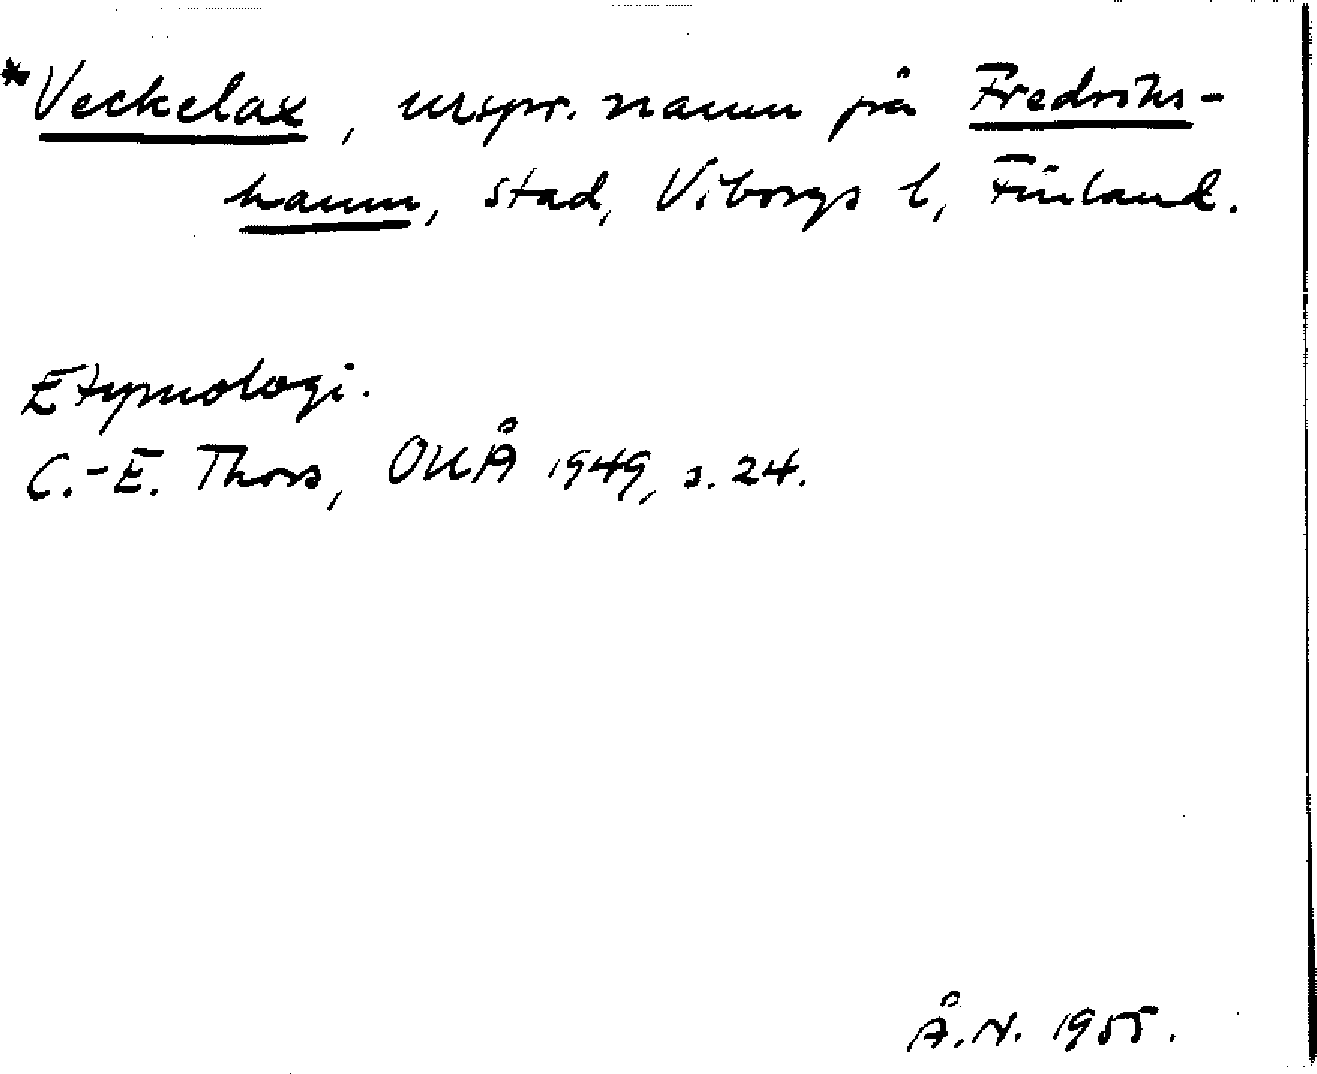 *Veckelax, urspr. namn på Fredriks-
hamn, stad, Viborgs l, Finland.
Etymologi.
C.-E. Thors, OUÅ 1949, s. 24.
Å.N. 1955.